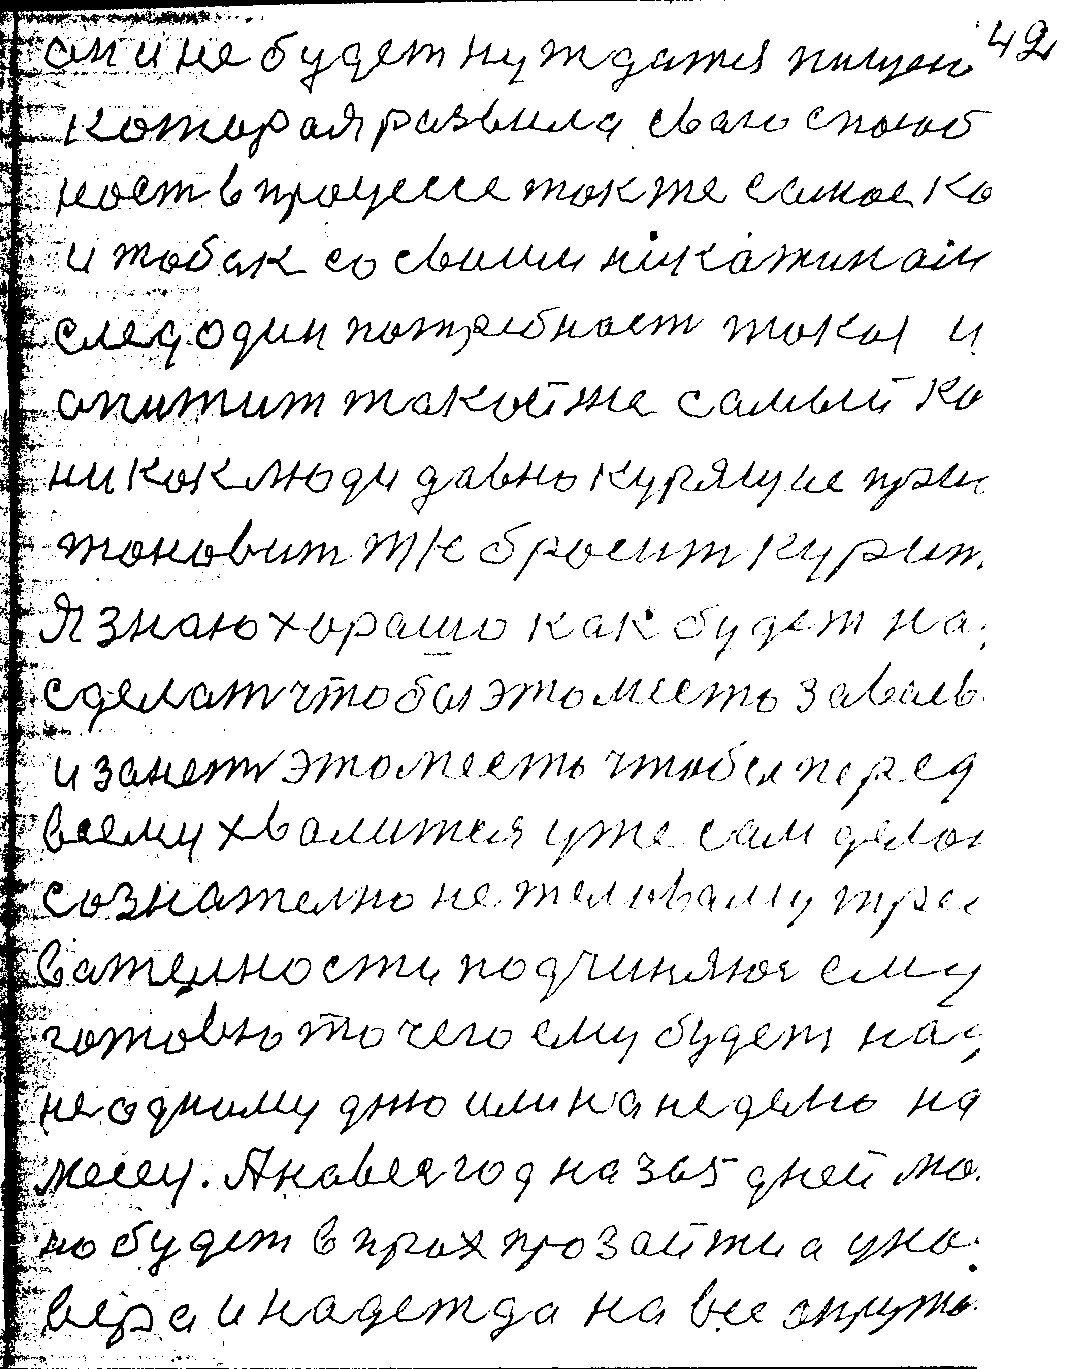 42
он и не будет нуждатся пищею
которая развила сваю способ
ност в процессе так же самое ко
и тобак со своими никатинаи
след один потребност такая и
апитит такой же самый ко
ни как люди давно курящие при
тановит т/к бросит курит
Я знаю хорашо как будет на
сделат чтобы это место завоев
и занет это место чтобы перед
всему хвалится уже сам делаю
сознателно не желаваму
вателности подчиняюс ему
готовю то чего ему будет над
не одному дню или на неделю на
месец. А на веся год на 365 дней мо
но будет в прах прозайти а уна
вера и надежда на все